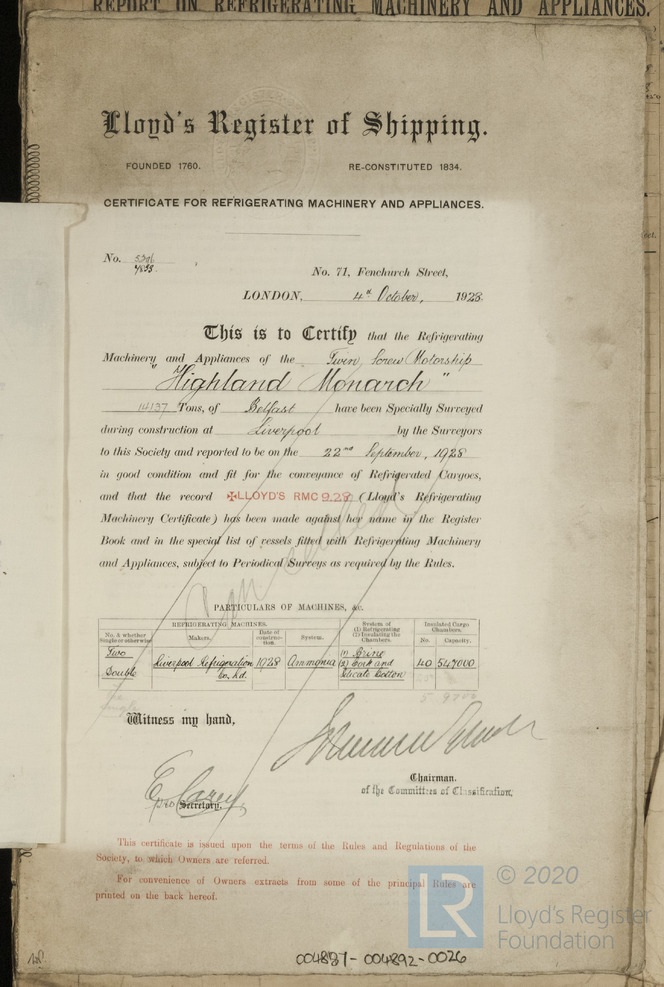 REPORT ON REFRIGERATING MACHINERY AND APPLIANCES.
Lloyd's Register of Shipping.
FOUNDED 1760. RE-CONSTITUTED 1834.
CERTIFICATE FOR REFRIGERATING MACHINERY AND APPLIANCES.
No.
No. 71, Fenchurch Street,
LONDON, 4th October, 1928.
This is to Certify that the Refrigerating
Machinery and Appliances of the Twin Screw Motorship
"Highland Monarch"
14137 Tons, of Belfast have been Specially Surveyed
during construction at Liverpool by the Surveyors
to this Society and reported to be on the 22nd September, 1928
in good condition and fit for the conveyance of Refrigerated Cargoes,
and that the record ✠LLOYD'S RMC 9.28 (Lloyd's Refrigerating
Machinery Certificate) has been made against her name in the Register
Book and in the special list of vessels fitted with Refrigerating Machinery
and Appliances, subject to Periodical Surveys as required by the Rules.
Cancelled
PARTICULARS OF MACHINES, &c.
REFRIGERATING MACHINES. System of (1) Refrigerating (2) Insulating the Chambers. Insulated Cargo Chambers.
No. & whether Single or otherwise Makers. Date of construction. System. No. Capacity.
Two Double Liverpool Refrigeration Co. Ld. 1928 Ammonia (1) Brine (2) Cork and Silicate Cotton 40 547000
Witness my hand,
Chairman.
of the Committees of Classification.
E Carey
pro Secretary.
This certificate is issued upon the terms of the Rules and Regulations of the
Society, to which Owners are referred.
For convenience of Owners extracts from some of the principal Rules are
printed on the back hereof.
LR © 2020
Lloyd's Register
Foundation
004887-004892-0026